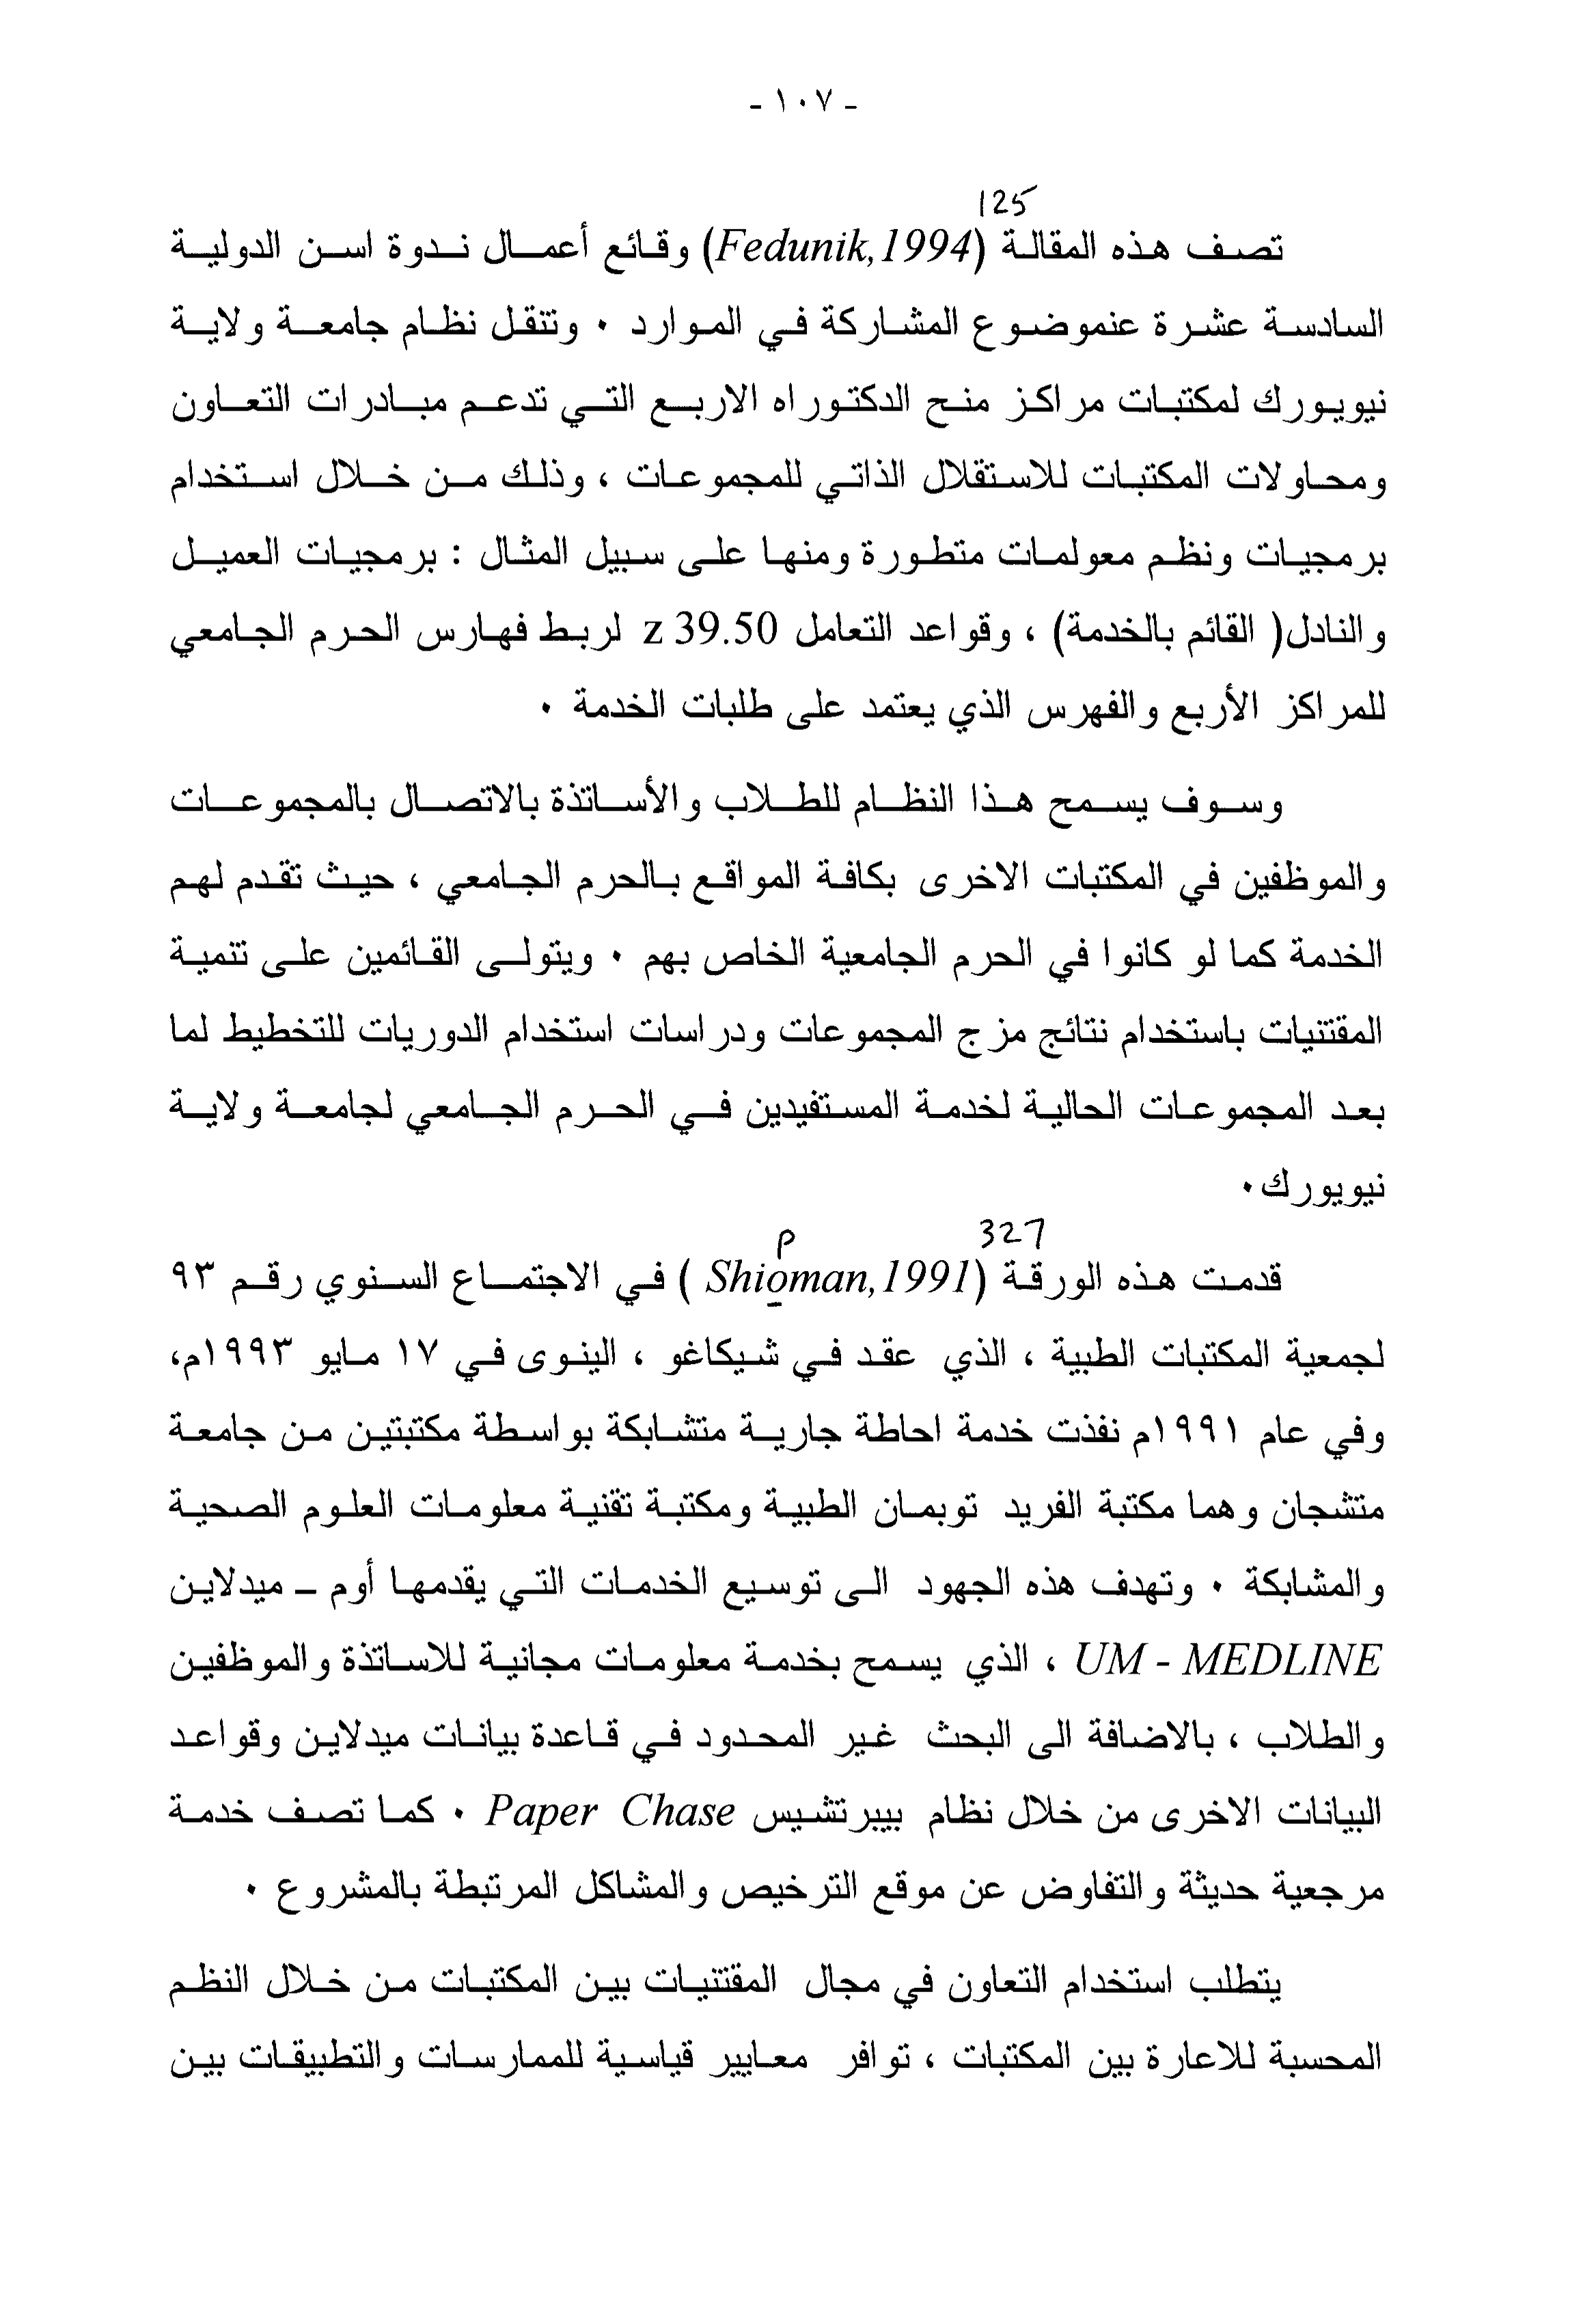 - ١٠٧ -
125
تصف هذه المقالة (Fedunik,1994) وقائع أعمال ندوة اسن الدولية
السادسة عشرة عنموضوع المشاركة في الموارد ٠ وتنقل نظام جامعة ولاية
نيويورك لمكتبات مراكز منح الدكتوراه الاربع التي تدعم مبادرات التعاون
ومحاولات المكتبات للاستقلال الذاتي للمجموعات ، وذلك من خلال استخدام
برمجيات ونظم معولمات متطورة ومنها على سبيل المثال : برمجيات العميل
والنادل( القائم بالخدمة) ، وقواعد التعامل z 39.50 لربط فهارس الحرم الجامعي
للمراكز الأربع والفهرس الذي يعتمد على طلبات الخدمة ٠
وسوف يسمح هذا النظام للطلاب والأساتذة بالاتصال بالمجموعات
والموظفين في المكتبات الاخرى بكافة المواقع بالحرم الجامعي ، حيث تقدم لهم
الخدمة كما لو كانوا في الحرم الجامعية الخاص بهم ٠ ويتولى القائمين على تنمية
المقتنيات باستخدام نتائج مزج المجموعات ودراسات استخدام الدوريات للتخطيط لما
بعد المجموعات الحالية لخدمة المستفيدين في الحرم الجامعي لجامعة ولاية
نيويورك٠
327 p
قدمت هذه الورقة (Shioman,1991 ) في الاجتماع السنوي رقم ٩٣
لجمعية المكتبات الطبية ، الذي عقد في شيكاغو ، الينوى في ١٧ مايو ١٩٩٣م،
وفي عام ١٩٩١م نفذت خدمة احاطة جارية متشابكة بواسطة مكتبتين من جامعة
متشجان وهما مكتبة الفريد توبمان الطبية ومكتبة تقنية معلومات العلوم الصحية
والمشابكة ٠ وتهدف هذه الجهود الى توسيع الخدمات التي يقدمها أوم - ميدلاين
UM - MEDLINE ، الذي يسمح بخدمة معلومات مجانية للاساتذة والموظفين
والطلاب ، بالاضافة الى البحث غير المحدود في قاعدة بيانات ميدلاين وقواعد
البيانات الاخرى من خلال نظام بيبرتشيس Paper Chase ٠ كما تصف خدمة
مرجعية حديثة والتفاوض عن موقع الترخيص والمشاكل المرتبطة بالمشروع ٠
يتطلب استخدام التعاون في مجال المقتنيات بين المكتبات من خلال النظم
المحسبة للاعارة بين المكتبات ، توافر معايير قياسية للممارسات والتطبيقات بين